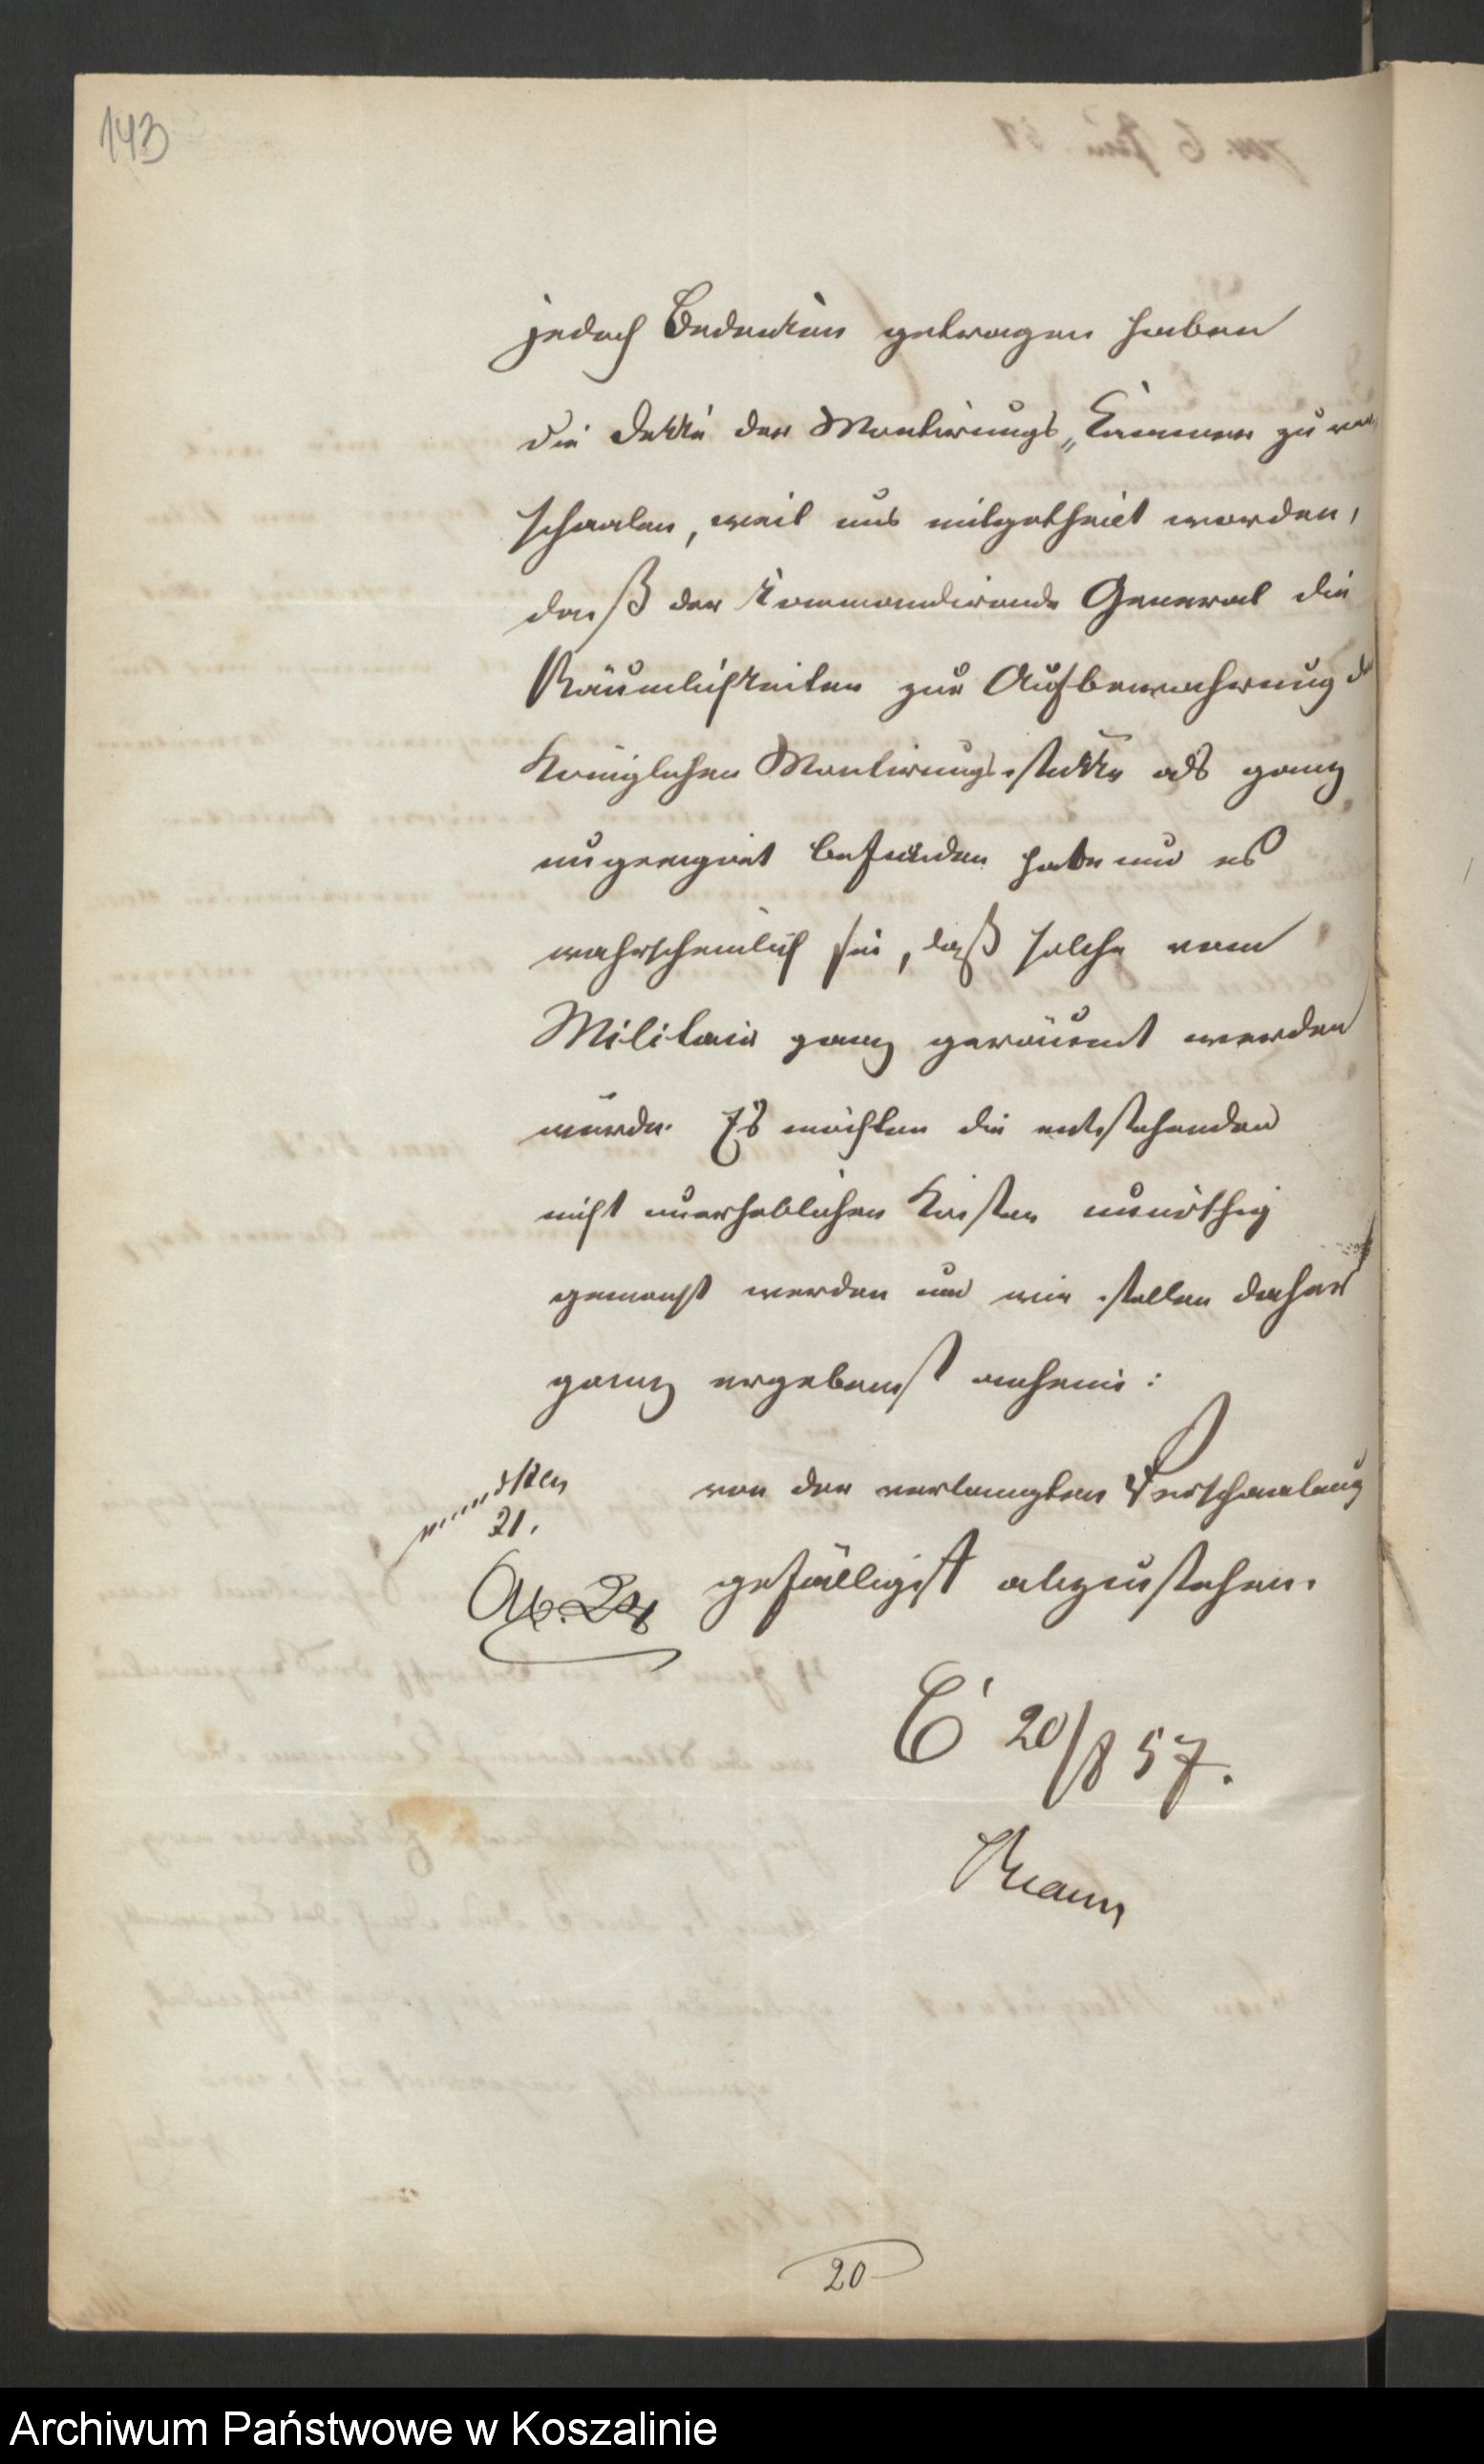 143
jedoch Bedenken getragen haben
die Dekke der Montirungs-Kammer zu ver
schaalen, weil uns mitgetheilt worden,
daß der kommandirende General die
Räumlichkeiten zur Aufbewahrung der
Königlichen Montirungsstükke als ganz
ungeeignet befunden habe und es
wahrscheinlich sei, daß solche vom
Militair ganz geräumt werden
würde. Es möchten die entstehenden
nicht unerheblichen Kosten unnöthig
gemacht werden und wir stellen daher
ganz ergebenst anheim:
von der verlangten Verschaalung
gefälligst abzustehen.
21.
20/8 57.
20
Archiwum Państwowe w Koszalinie